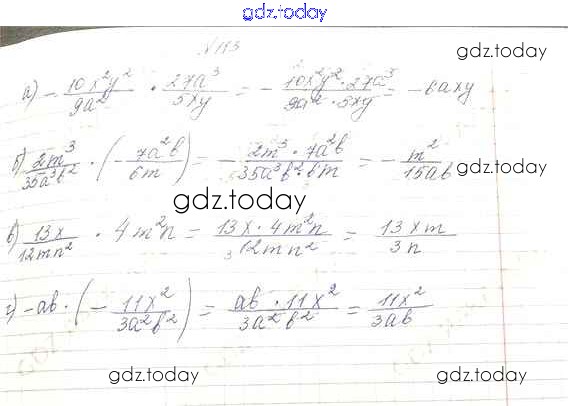 gdz.today
№ 113
gdz.today
а) - 10x²y²/9a² · 27a³/5xy = - 10x²y² · 27a³/9a² · 5xy = -6axy
б) 2m³/35a³b² · (- 7a²b/6m) = - 2m³ · 7a²b/35a³b² · 6m = - m²/15ab
gdz.today
gdz.today
в) 13x/12mn² · 4m²n = 13x · 4m²n/12mn² = 13xm/3n
г) -ab · (- 11x²/3a²b²) = ab · 11x²/3a²b² = 11x²/3ab
gdz.today
gdz.today